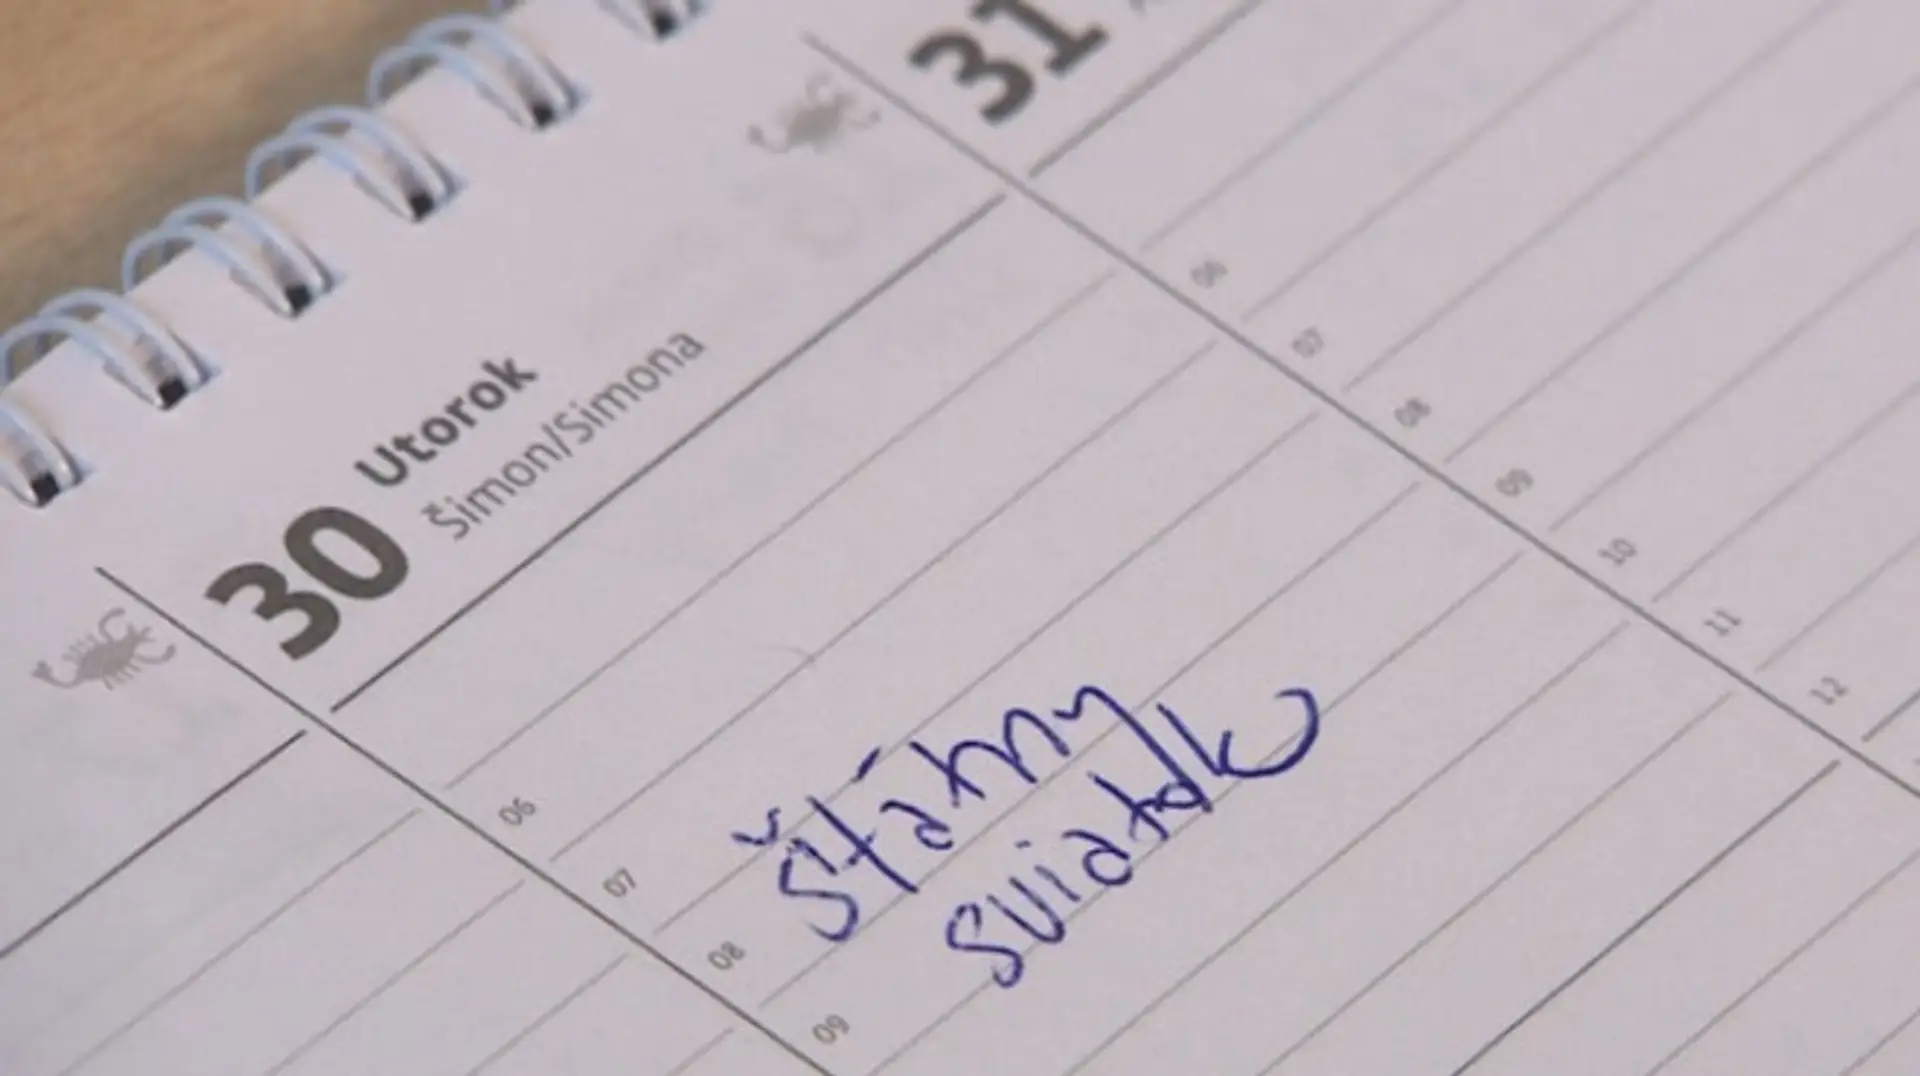 30 Utorok
Šimon/Simona
31
06
07
08
09
štátny
sviatok
06
07
08
09
10
11
12